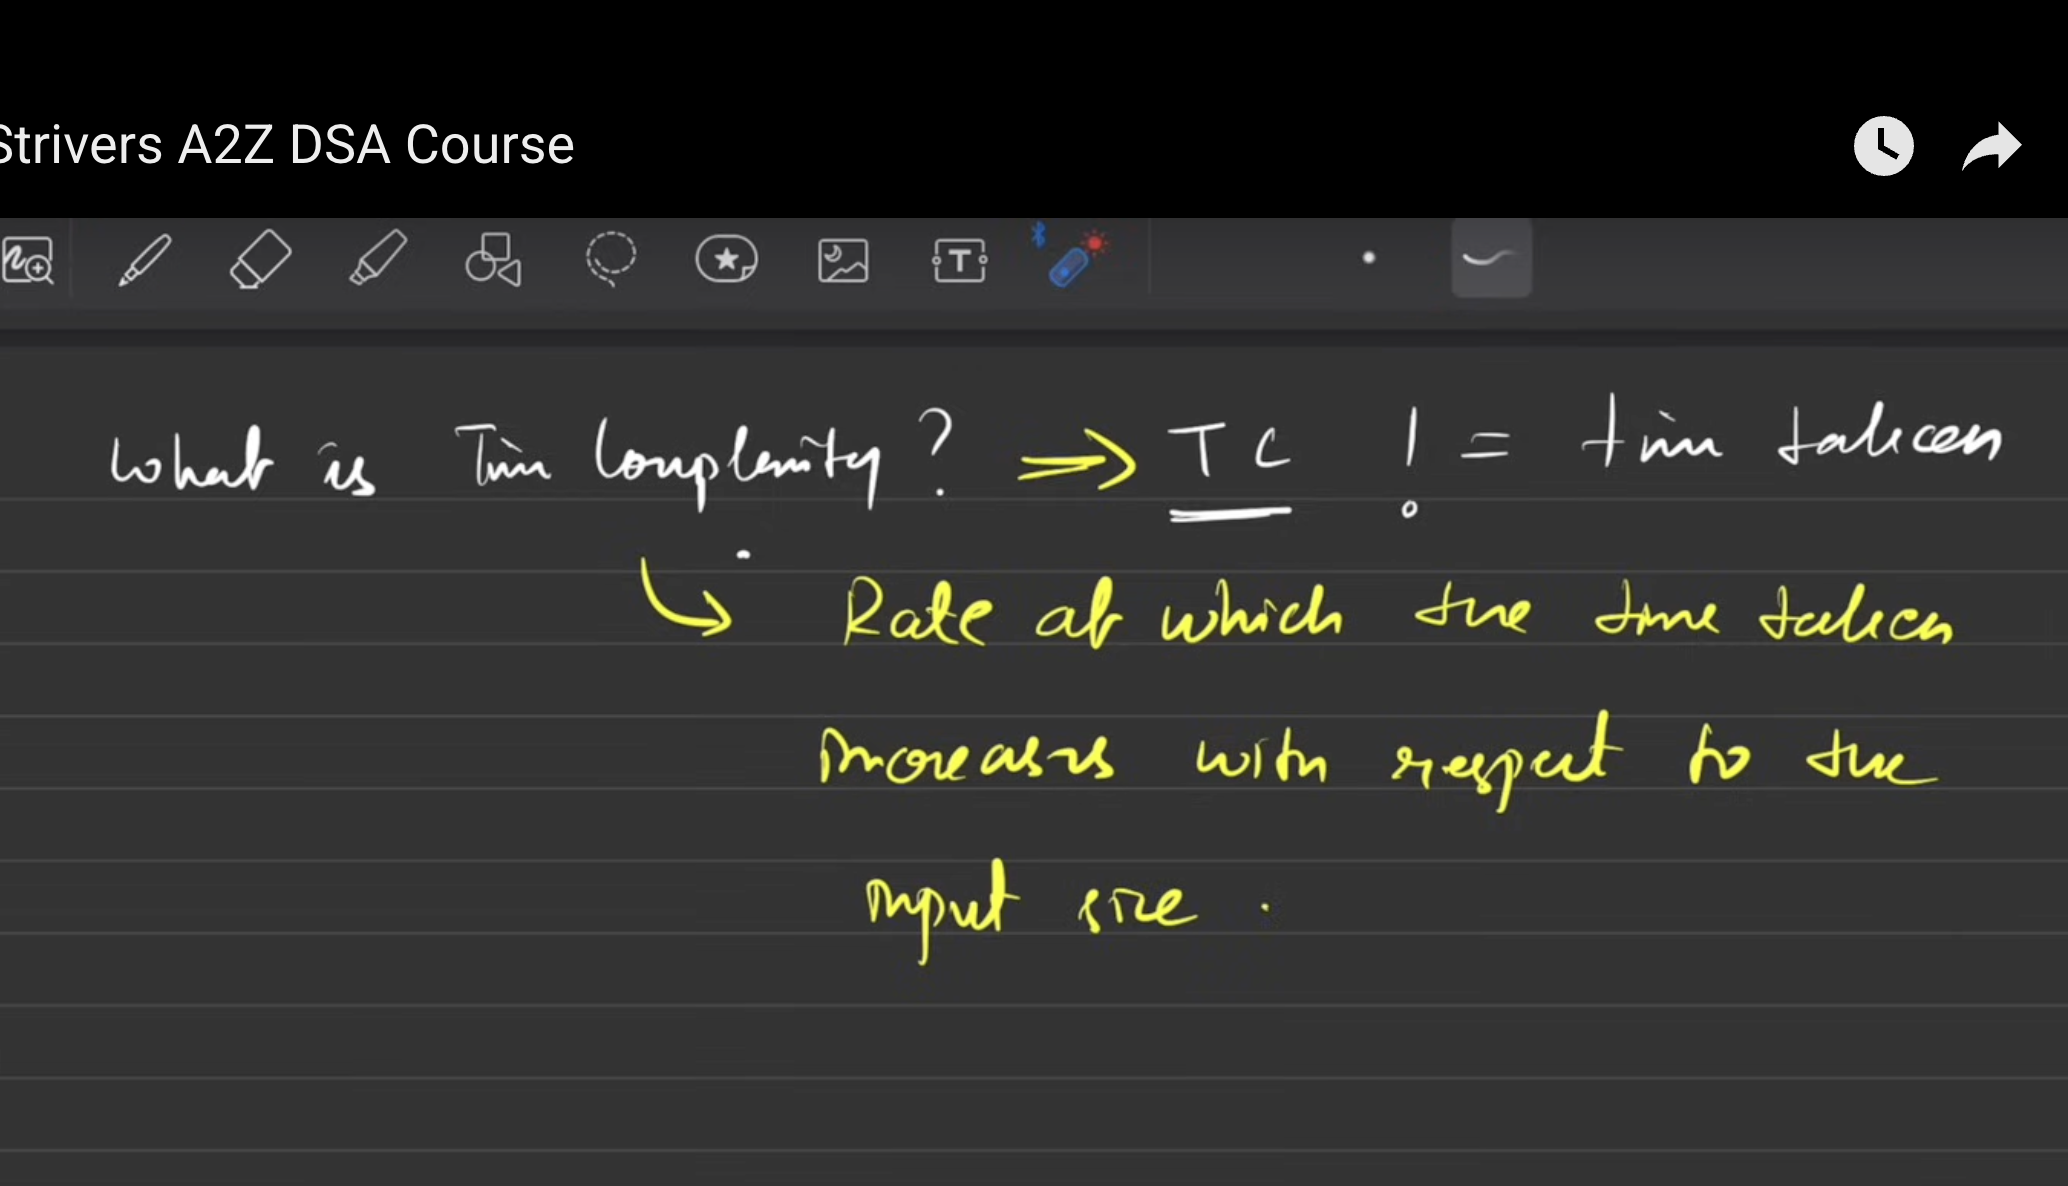 Strivers A2Z DSA Course
What is Time Complexity? => TC != time taken
Rate at which the time taken
increases with respect to the
input size.